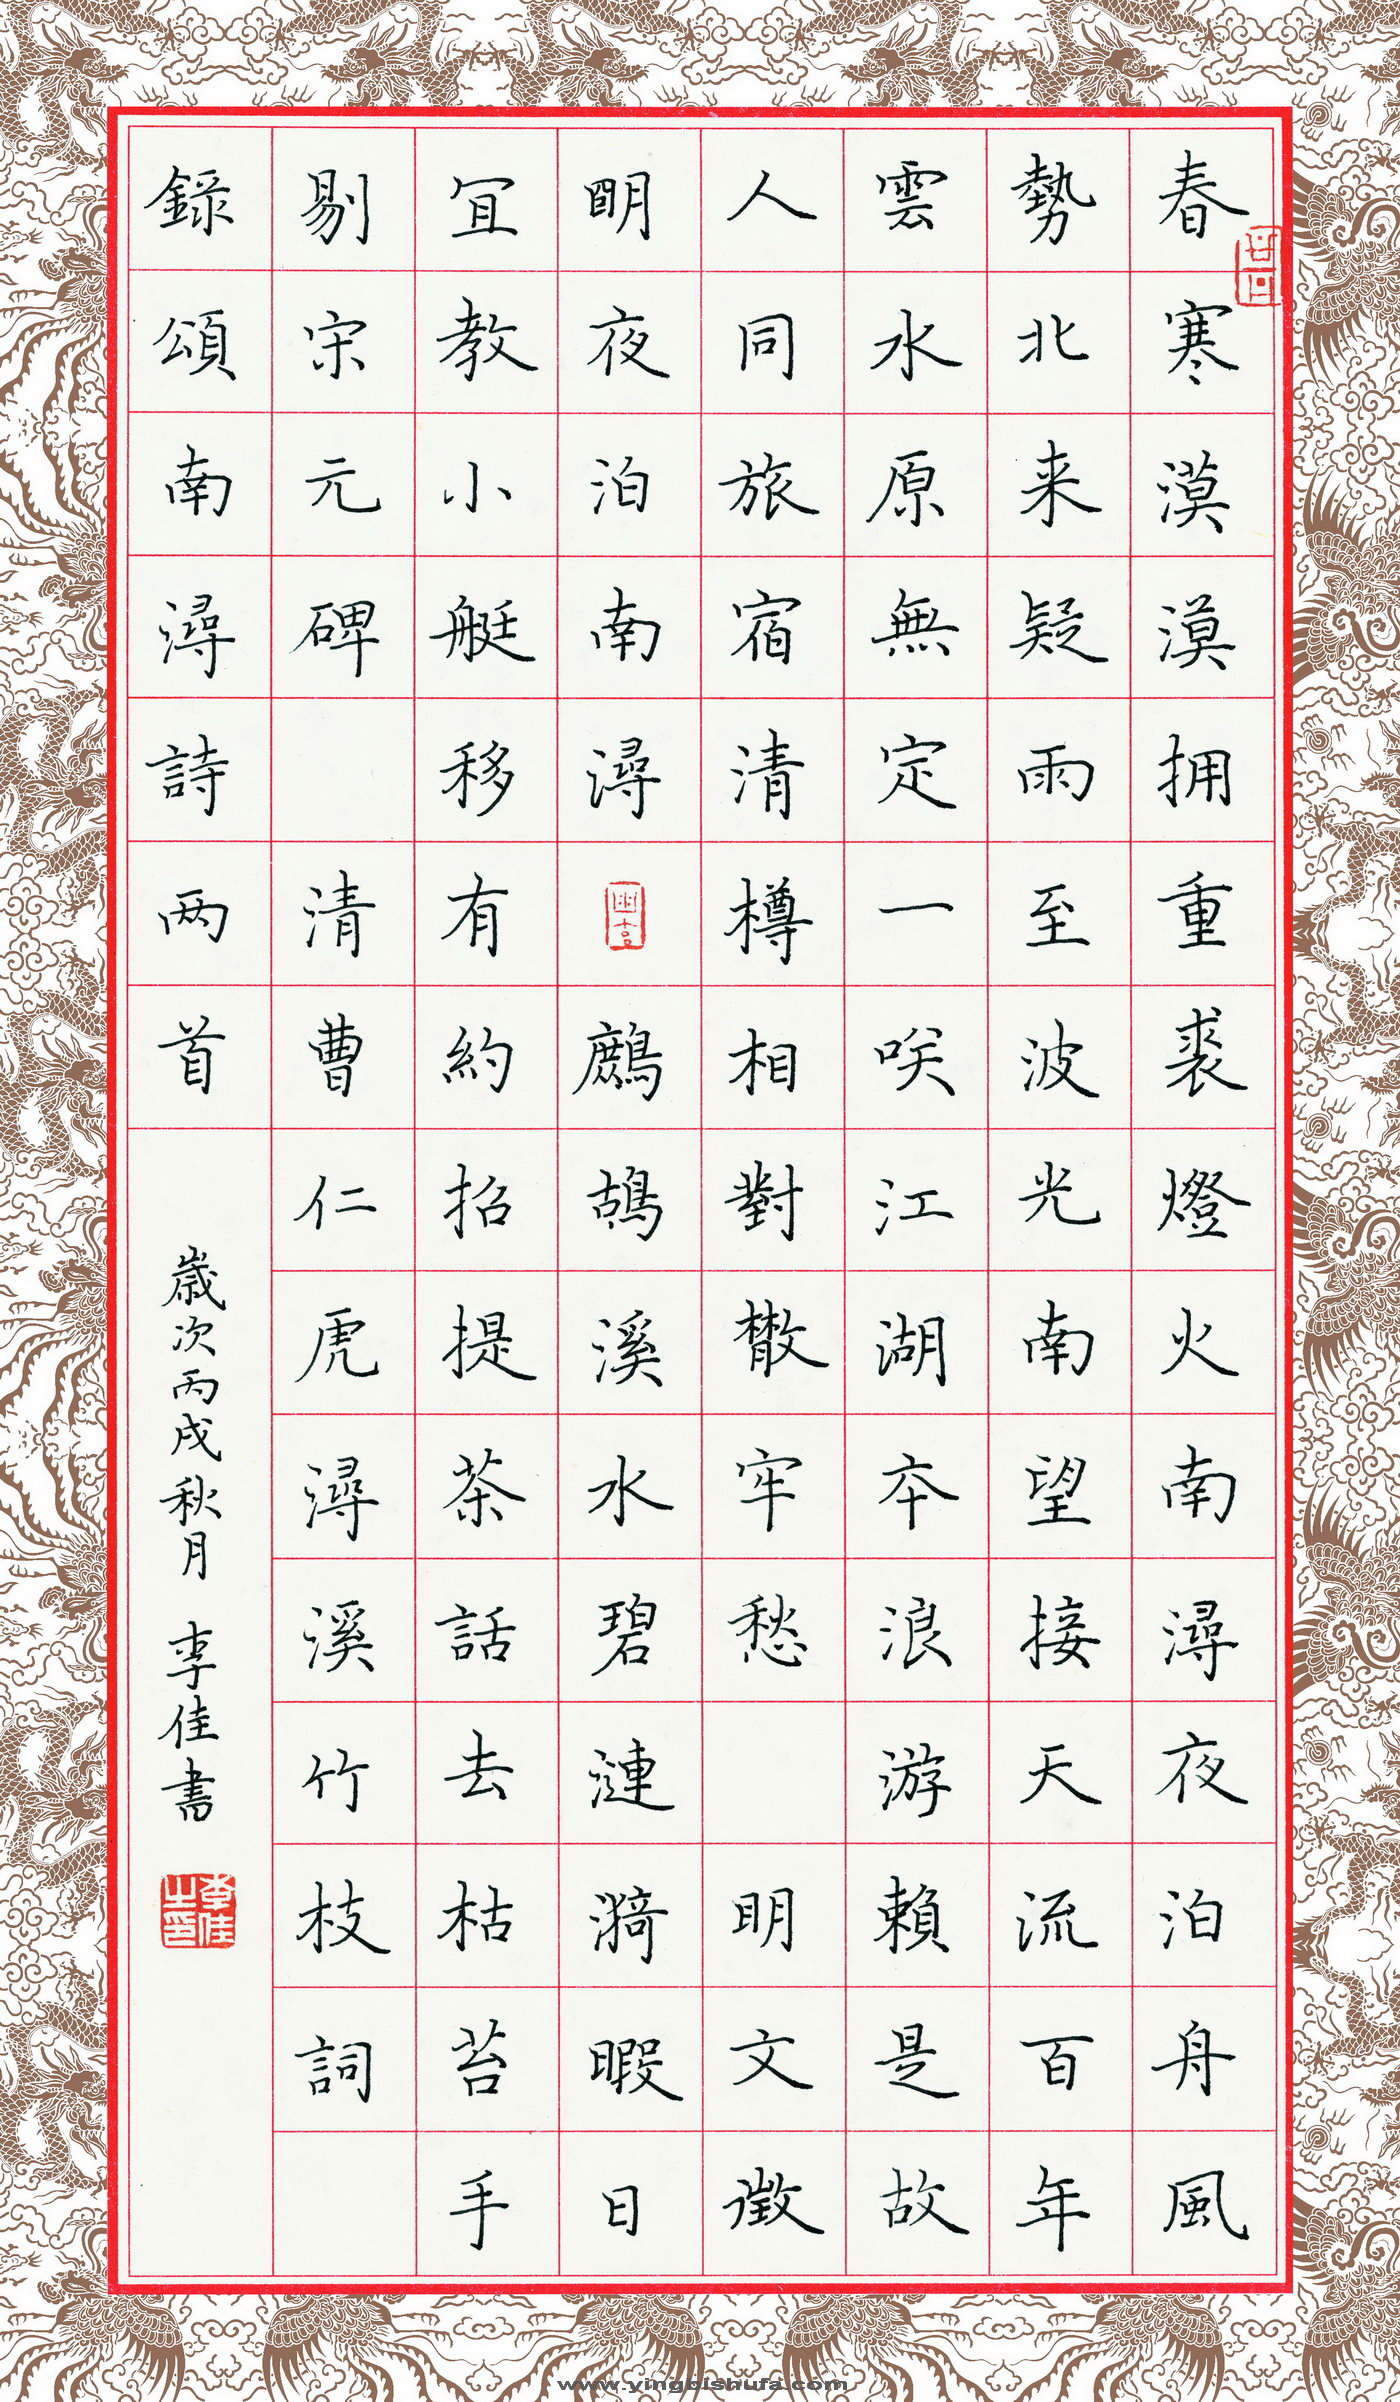 春寒漠漠拥重裘燈火南潯夜泊舟風
勢北来疑雨至波光南望接天流百年
雲水原無定一咲江湖本浪游賴是故
人同旅宿清樽相對散牢愁 明文徵
明夜泊南潯 鷓鴣溪水碧漣漪暇日
宜教小艇移有約招提茶話去枯苔手
剔宋元碑 清曹仁虎潯溪竹枝詞
錄頌南潯詩两首
歲次丙戌秋月 李佳書
李佳之印
www.yingbishufa.com